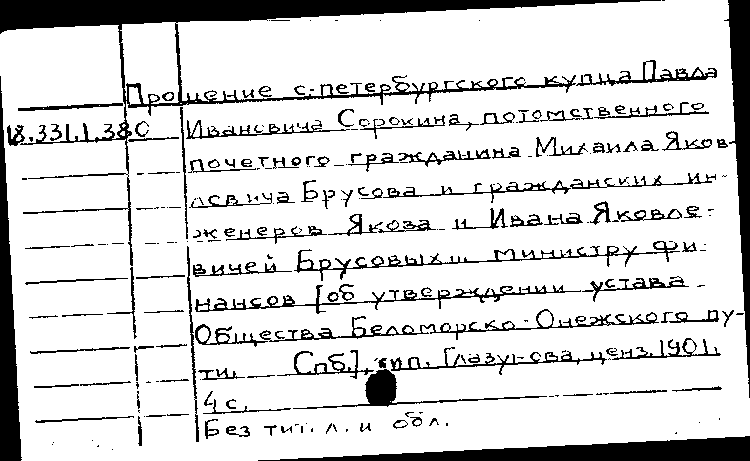 Прошение с.-петербургского купца Павла
18.331.1.380 Ивановича Сорокина, потомственного
почетного гражданина Михаила Яков-
левича Брусова и гражданских ин-
женеров Якова и Ивана Яковле-
вичей Брусовых ... министру фи-
нансов [об утверждении устава
Общества Беломорско-Онежского пу-
ти. Спб.], тип. Глазунова, ценз. 1901.
4 с.
Без тит. л. и обл.